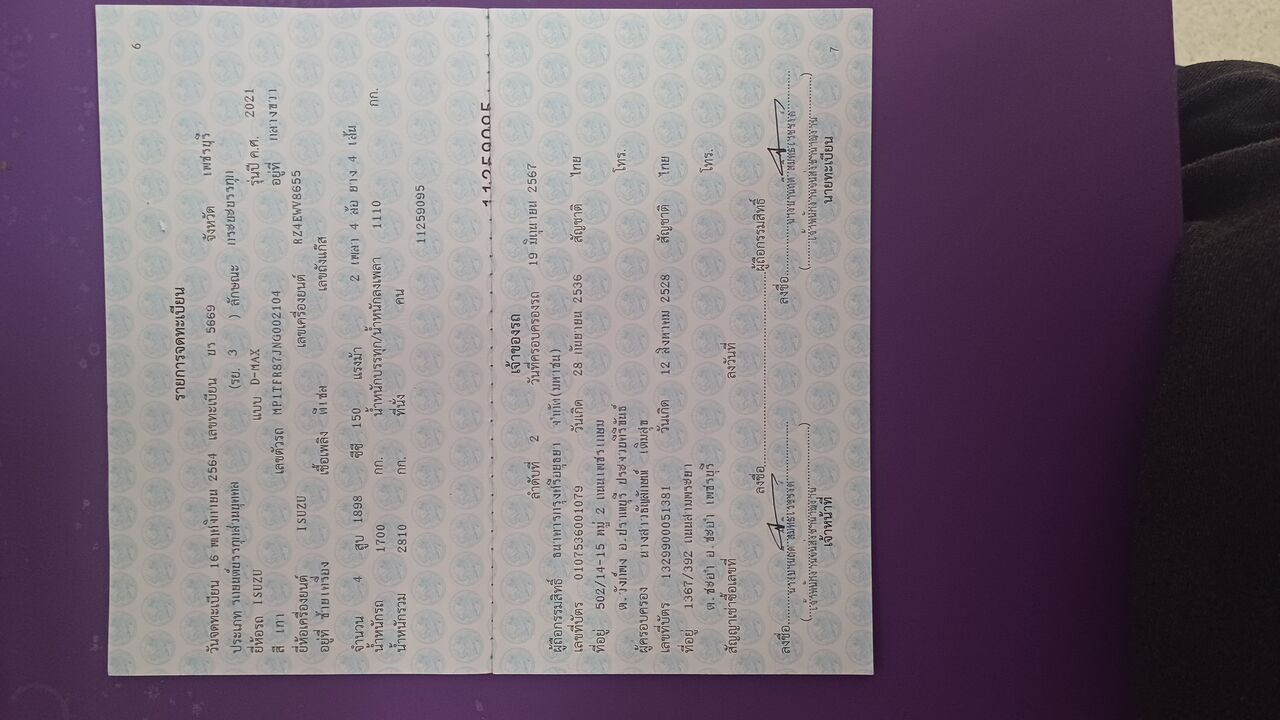 6
รายการจดทะเบียน
วันจดทะเบียน 16 พฤศจิกายน 2564 เลขทะเบียน ยร 5669 จังหวัด เพชรบุรี
ประเภท รถยนต์บรรทุกส่วนบุคคล (รย. 3 ) ลักษณะ กระบะบรรทุก
ยี่ห้อรถ ISUZU แบบ D-MAX รุ่นปี ค.ศ. 2021
สี เทา เลขตัวรถ MP1TFR87JNG002104 อยู่ที่ กลางขวา
ยี่ห้อเครื่องยนต์ ISUZU เลขเครื่องยนต์ RZ4EWV8655
อยู่ที่ ซ้ายเครื่อง เชื้อเพลิง ดีเซล เลขถังแก๊ส
จำนวน 4 สูบ 1898 ซีซี 150 แรงม้า 2 เพลา 4 ล้อ ยาง 4 เส้น
น้ำหนักรถ 1700 กก. น้ำหนักบรรทุก/น้ำหนักลงเพลา 1110 กก.
น้ำหนักรวม 2810 กก. ที่นั่ง คน
11259095
11259095
เจ้าของรถ
ลำดับที่ 2 วันที่ครอบครองรถ 19 มิถุนายน 2567
ผู้ถือกรรมสิทธิ์ ธนาคารกรุงศรีอยุธยา จำกัด(มหาชน)
เลขที่บัตร 0107536001079 วันเกิด 28 กันยายน 2536 สัญชาติ ไทย
ที่อยู่ 502/14-15 หมู่ 2 ถนนเพชรเกษม โทร.
ต.วังก์พง อ.ปราณบุรี ประจวบคีรีขันธ์
ผู้ครอบครอง นางสาว
เลขที่บัตร 1329900051381 วันเกิด 12 สิงหาคม 2528 สัญชาติ ไทย
ที่อยู่ 1367/392 ถนนสามพระยา โทร.
ต.ชะอำ อ.ชะอำ เพชรบุรี
สัญญาเช่าซื้อเลขที่ ลงวันที่
ลงชื่อ ผู้ถือกรรมสิทธิ์
ลงชื่อ ลงชื่อ
(เจ้าพนักงานขนส่งชำนาญงาน) (เจ้าพนักงานขนส่งชำนาญงาน)
เจ้าหน้าที่ นายทะเบียน
7